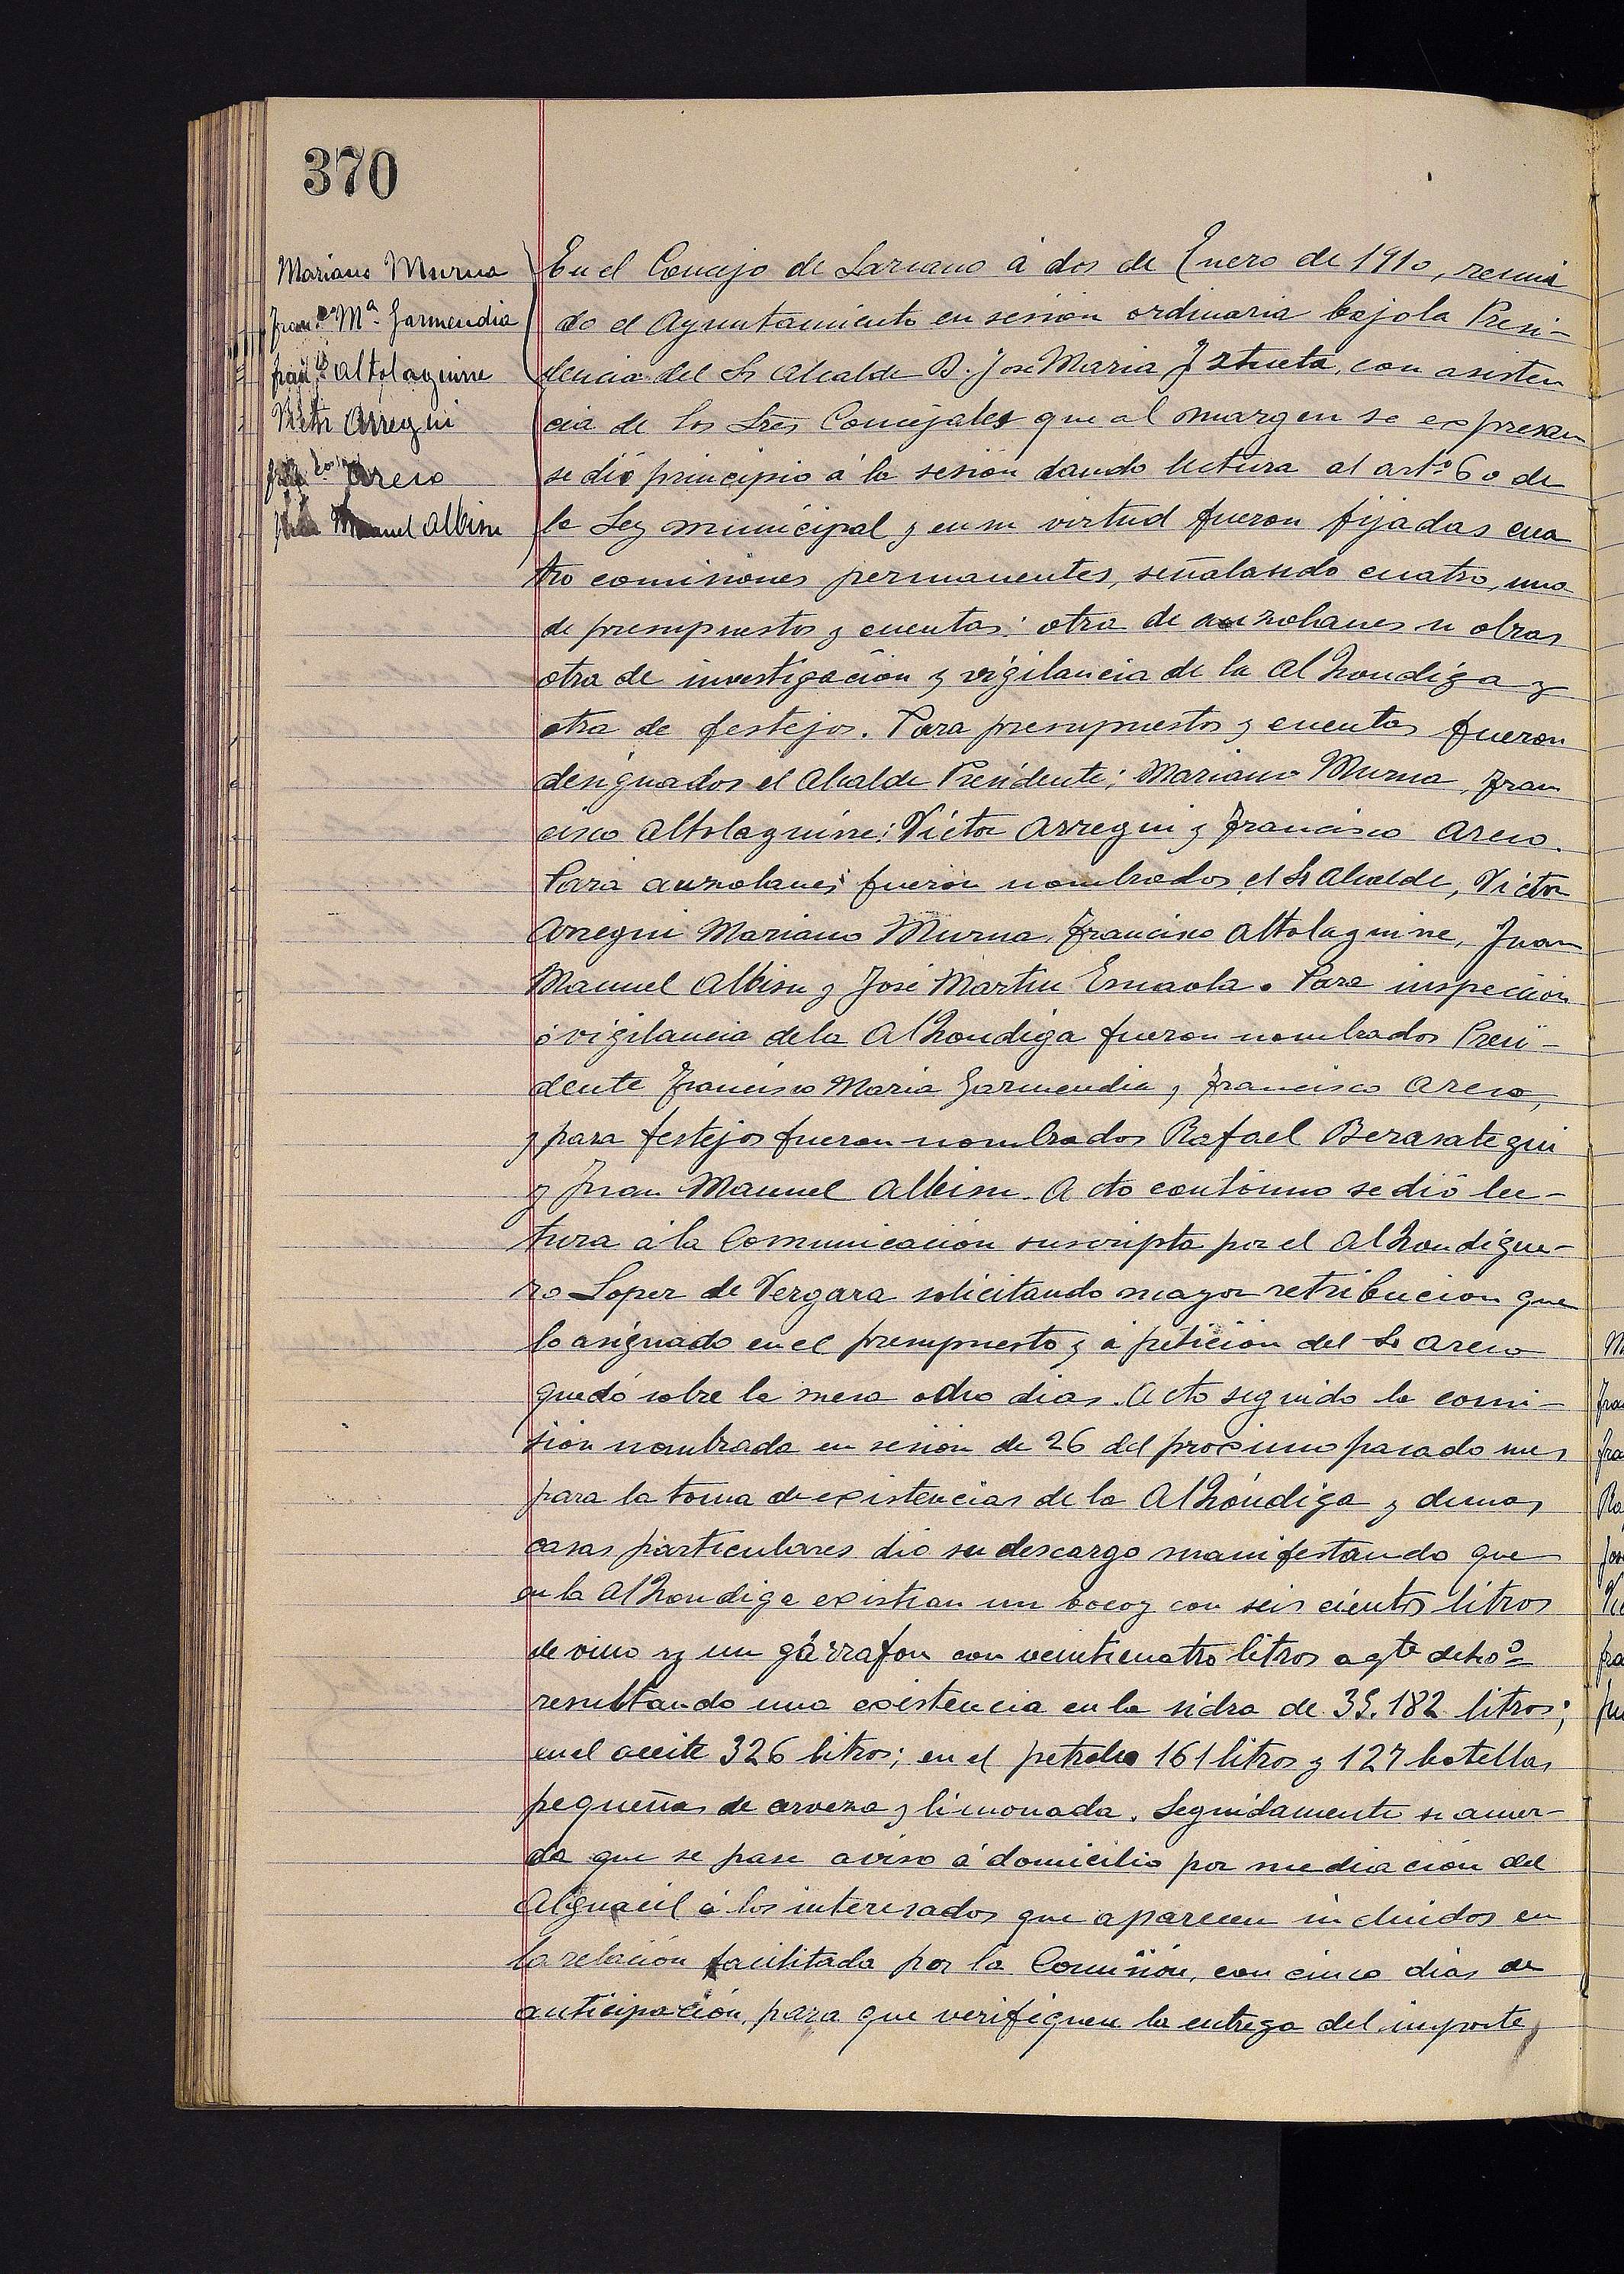 370
Mariano Murua
Fran.co Mª. Garmendia
Fran.co Altolaguirre
Victor Arregui
Fran.co Areso
Juan Manuel Albisu
En el Concejo de Lazcano á dos de Enero de 1910, reuni
do el Ayuntamiento en sesion ordinaria bajo la Presi-
dencia del Sr Alcalde D. Jose Maria Iztueta, con asisten
cia de los Sres Concejales que al margen se expresan
se dió principio á la sesion dando lectura al artº 60 de
la Ley municipal y en su virtud fueron fijadas cua
tro comisiones permanentes, señalando cuatro, una
de presupuestos y cuentas: otra de auzolanes u obras
otra de investigación y vigilancia de la Alhondiga y
otra de festejos. Para presupuestos y cuentas fueron
designados el Alcalde Presidente; Mariano Murua, Fran
cisco Altolaguirre: Victor Arregui y Francisco Areso.
Para auzolanes fueron nombrados el Sr Alcalde, Victor
Arregui Mariano Murua, Francisco Altolaguirre, Juan
Manuel Albisu y José Martin Esnaola. Para inspeccion
ó vigilancia de la Alhondiga fueron nombrados Presi-
dente Francisco Maria Garmendia y Francisco Areso,
y para festejos fueron nombrados Rafael Berasategui
y Juan Manuel Albisu. Acto continuo se dió lec-
tura á la Comunicación suscripta por el Alhondigue-
ro Lopez de Vergara solicitando mayor retribucion que
lo asignado en el presupuesto y á petición del Sr Areso
quedó sobre la mesa ocho dias. Acto seguido la comi-
sión nombrada en sesion de 26 del proximo pasado mes
para la toma de existencias de la Alhóndiga y demas
casas particulares dio su descargo manifestando que
en la Alhondiga existian un bocoy con seis cientos litros
de vino y un gárrafon con veinticuatro litros agte
resultando una existencia en la sidra de 35.182 litros;
en el aceite 326 litros; en el petroleo 161 litros y 127 botellas
pequeñas de cerveza y limonada. Seguidamente se acuer-
da que se pase aviso á domicilio por mediación del
Alguacil á los interesados que aparecen incluidos en
la relación facilitada por la Comisión, con cinco dias de
anticipación, para que verifiquen la entrega del importe,